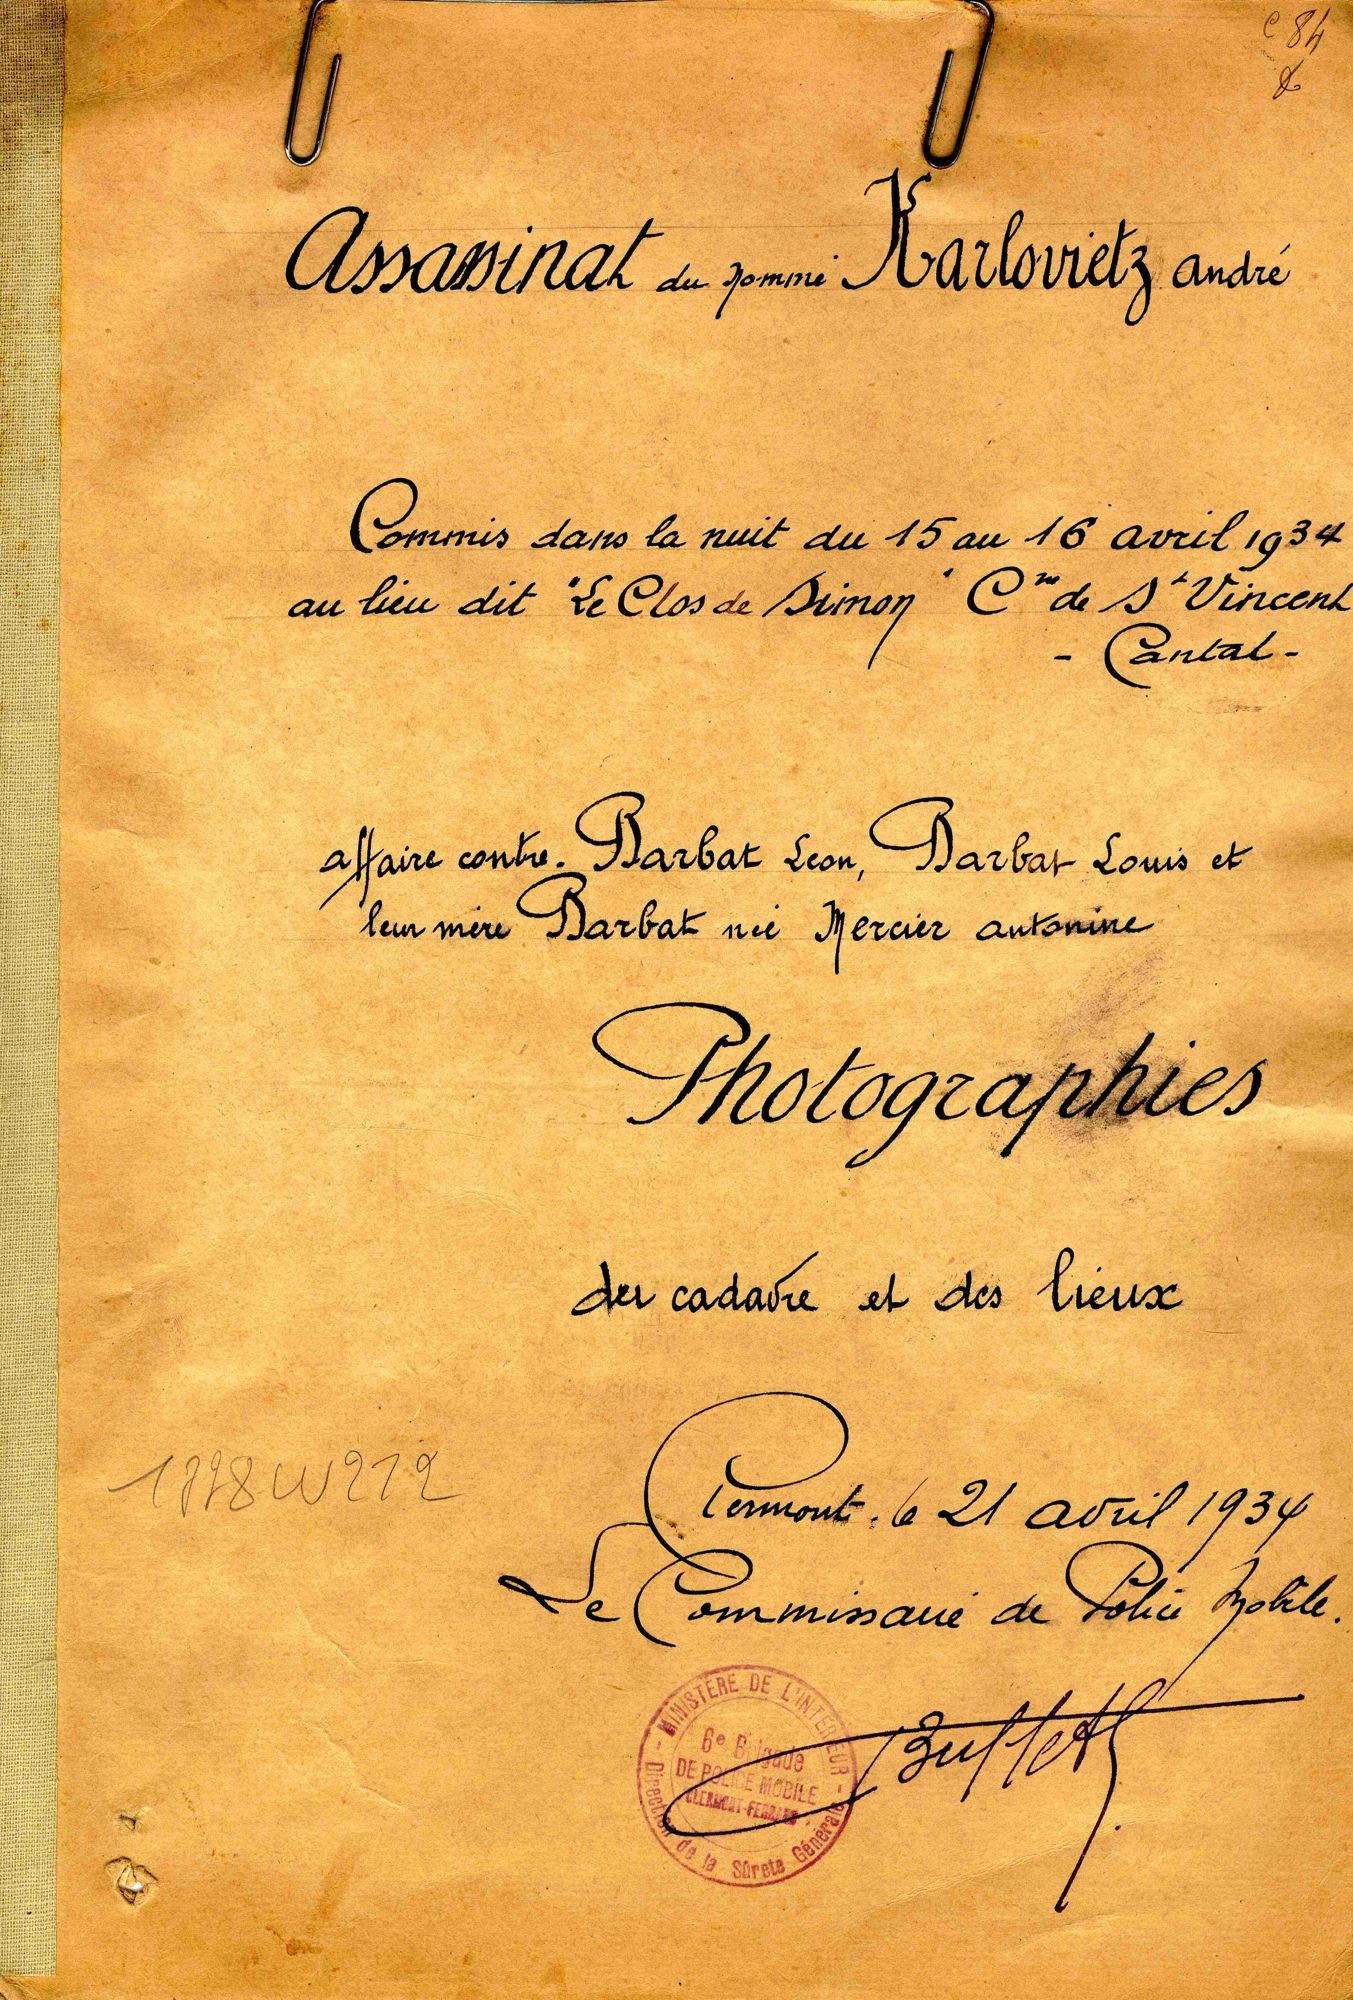 C 84
Assassinat du nommé Karlovietz André
Commis dans la nuit du 15 au 16 avril 1934
au lieu dit "Le Clos de Simon" Cne de St Vincent
- Cantal -
affaire contre. Barbat Léon, Barbat Louis et
leur mère Barbat née Mercier antonine
Photographies
du cadavre et des lieux
1728W212
Clermont. le 21 avril 1934
Le Commissaire de Police Mobile.
Buffet
- MINISTÈRE DE L'INTÉRIEUR -
6e Brigade
DE POLICE MOBILE
CLERMONT-FERRAND
Direction de la Sûreté Générale